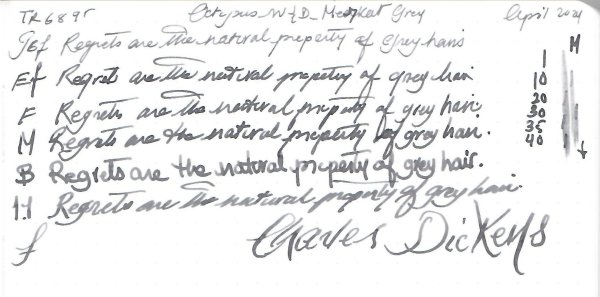 TR68 95 Octopus W&D Meerkat Grey April 2024
Jef Regrets are the natural property of grey hairs M
Ef Regrets are the natural property of grey hair 1 10
F Regrets are the natural property of grey hair. 20 30
M Regrets are the natural property of grey hair. 35 40
B Regrets are the natural property of grey hair.
1.1 Regrets are the natural property of grey hair.
f Charles Dickens